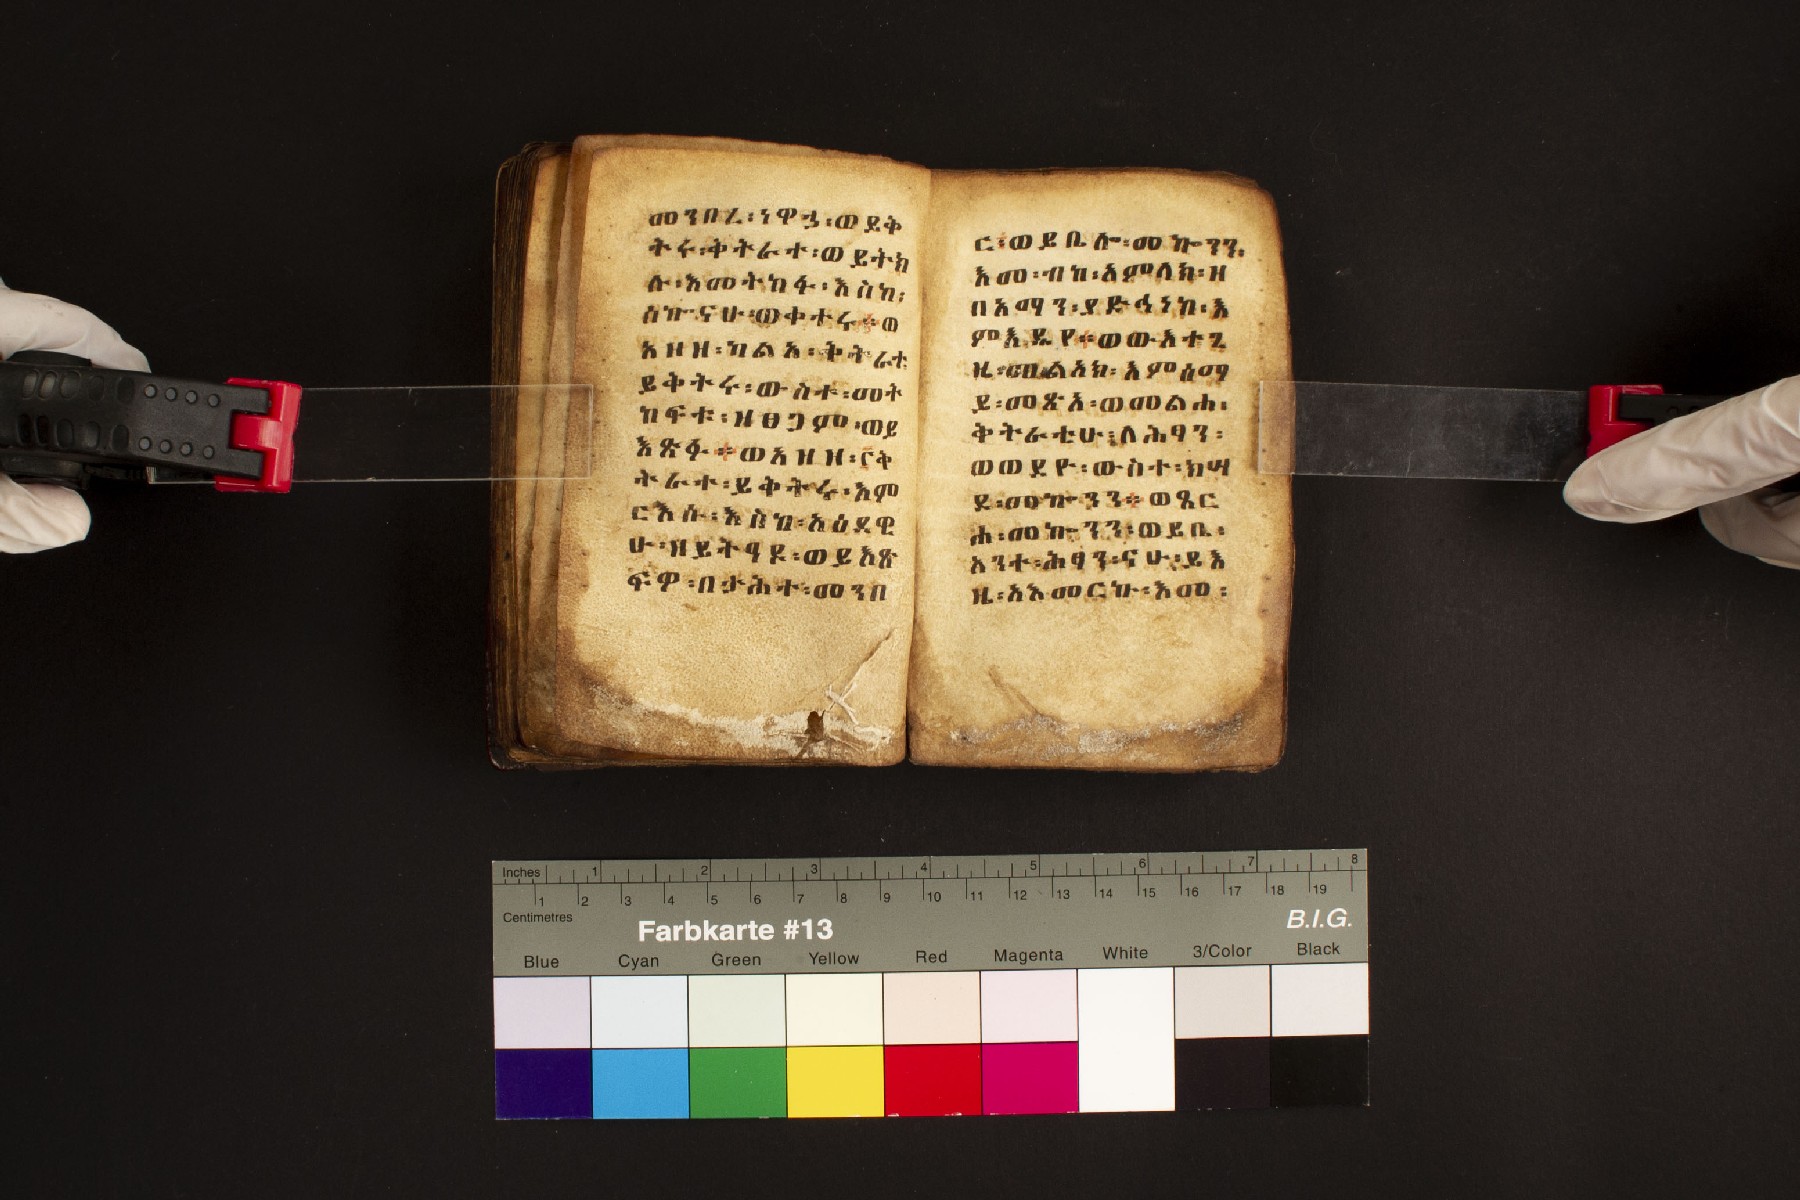 መንበረ፡ነዋኃ፡ወይቅ
ትሩ፡ቅትራተ፡ወይትክ
ሉ፡እመትከፋ፡እስከ፡
ሰኰናሁ፡ወቀተሩ፡ወ
አዘዘ፡ካልአ፡ቅትራተ
ይቅትሩ፡ውስተ፡መት
ከፍተ፡ዝፀጋም፡ወይ
እጽፉ፡ወአዝዘ፡፫ቅ
ትራተ፡ይቅትሩ፡እም
ርእሱ፡እስከ፡አዕደዊ
ሁ፡ዘይትዓዶ፡ወይእጽ
ፍዎ፡በታሕተ፡መንበ
ር፡ወይቤሎ፡መኰንን፡
እመ፡ብከ፡አምላክ፡ዘ
በአማን፡ያድኅነከ፡እ
ምእዴየ፡ወውእተጊ
ዜ፡መልአክ፡እምሰማ
ይ፡መጽአ፡ወመልሐ፡
ቅትራቲሁ፡ለሕፃን፡
ወወደዮ፡ውስተ፡ክሣ
ደ፡መኰንን፡ወጼር
ሐ፡መኰንን፡ወይቤ፡
አንተ፡ሕፃን፡ናሁ፡ይእ
ዜ፡አእመርኩ፡እመ፡
Inches 1 2 3 4 5 6 7 8
1 2 3 4 5 6 7 8 9 10 11 12 13 14 15 16 17 18 19
Centimetres
Farbkarte #13
B.I.G.
Blue Cyan Green Yellow Red Magenta White 3/Color Black